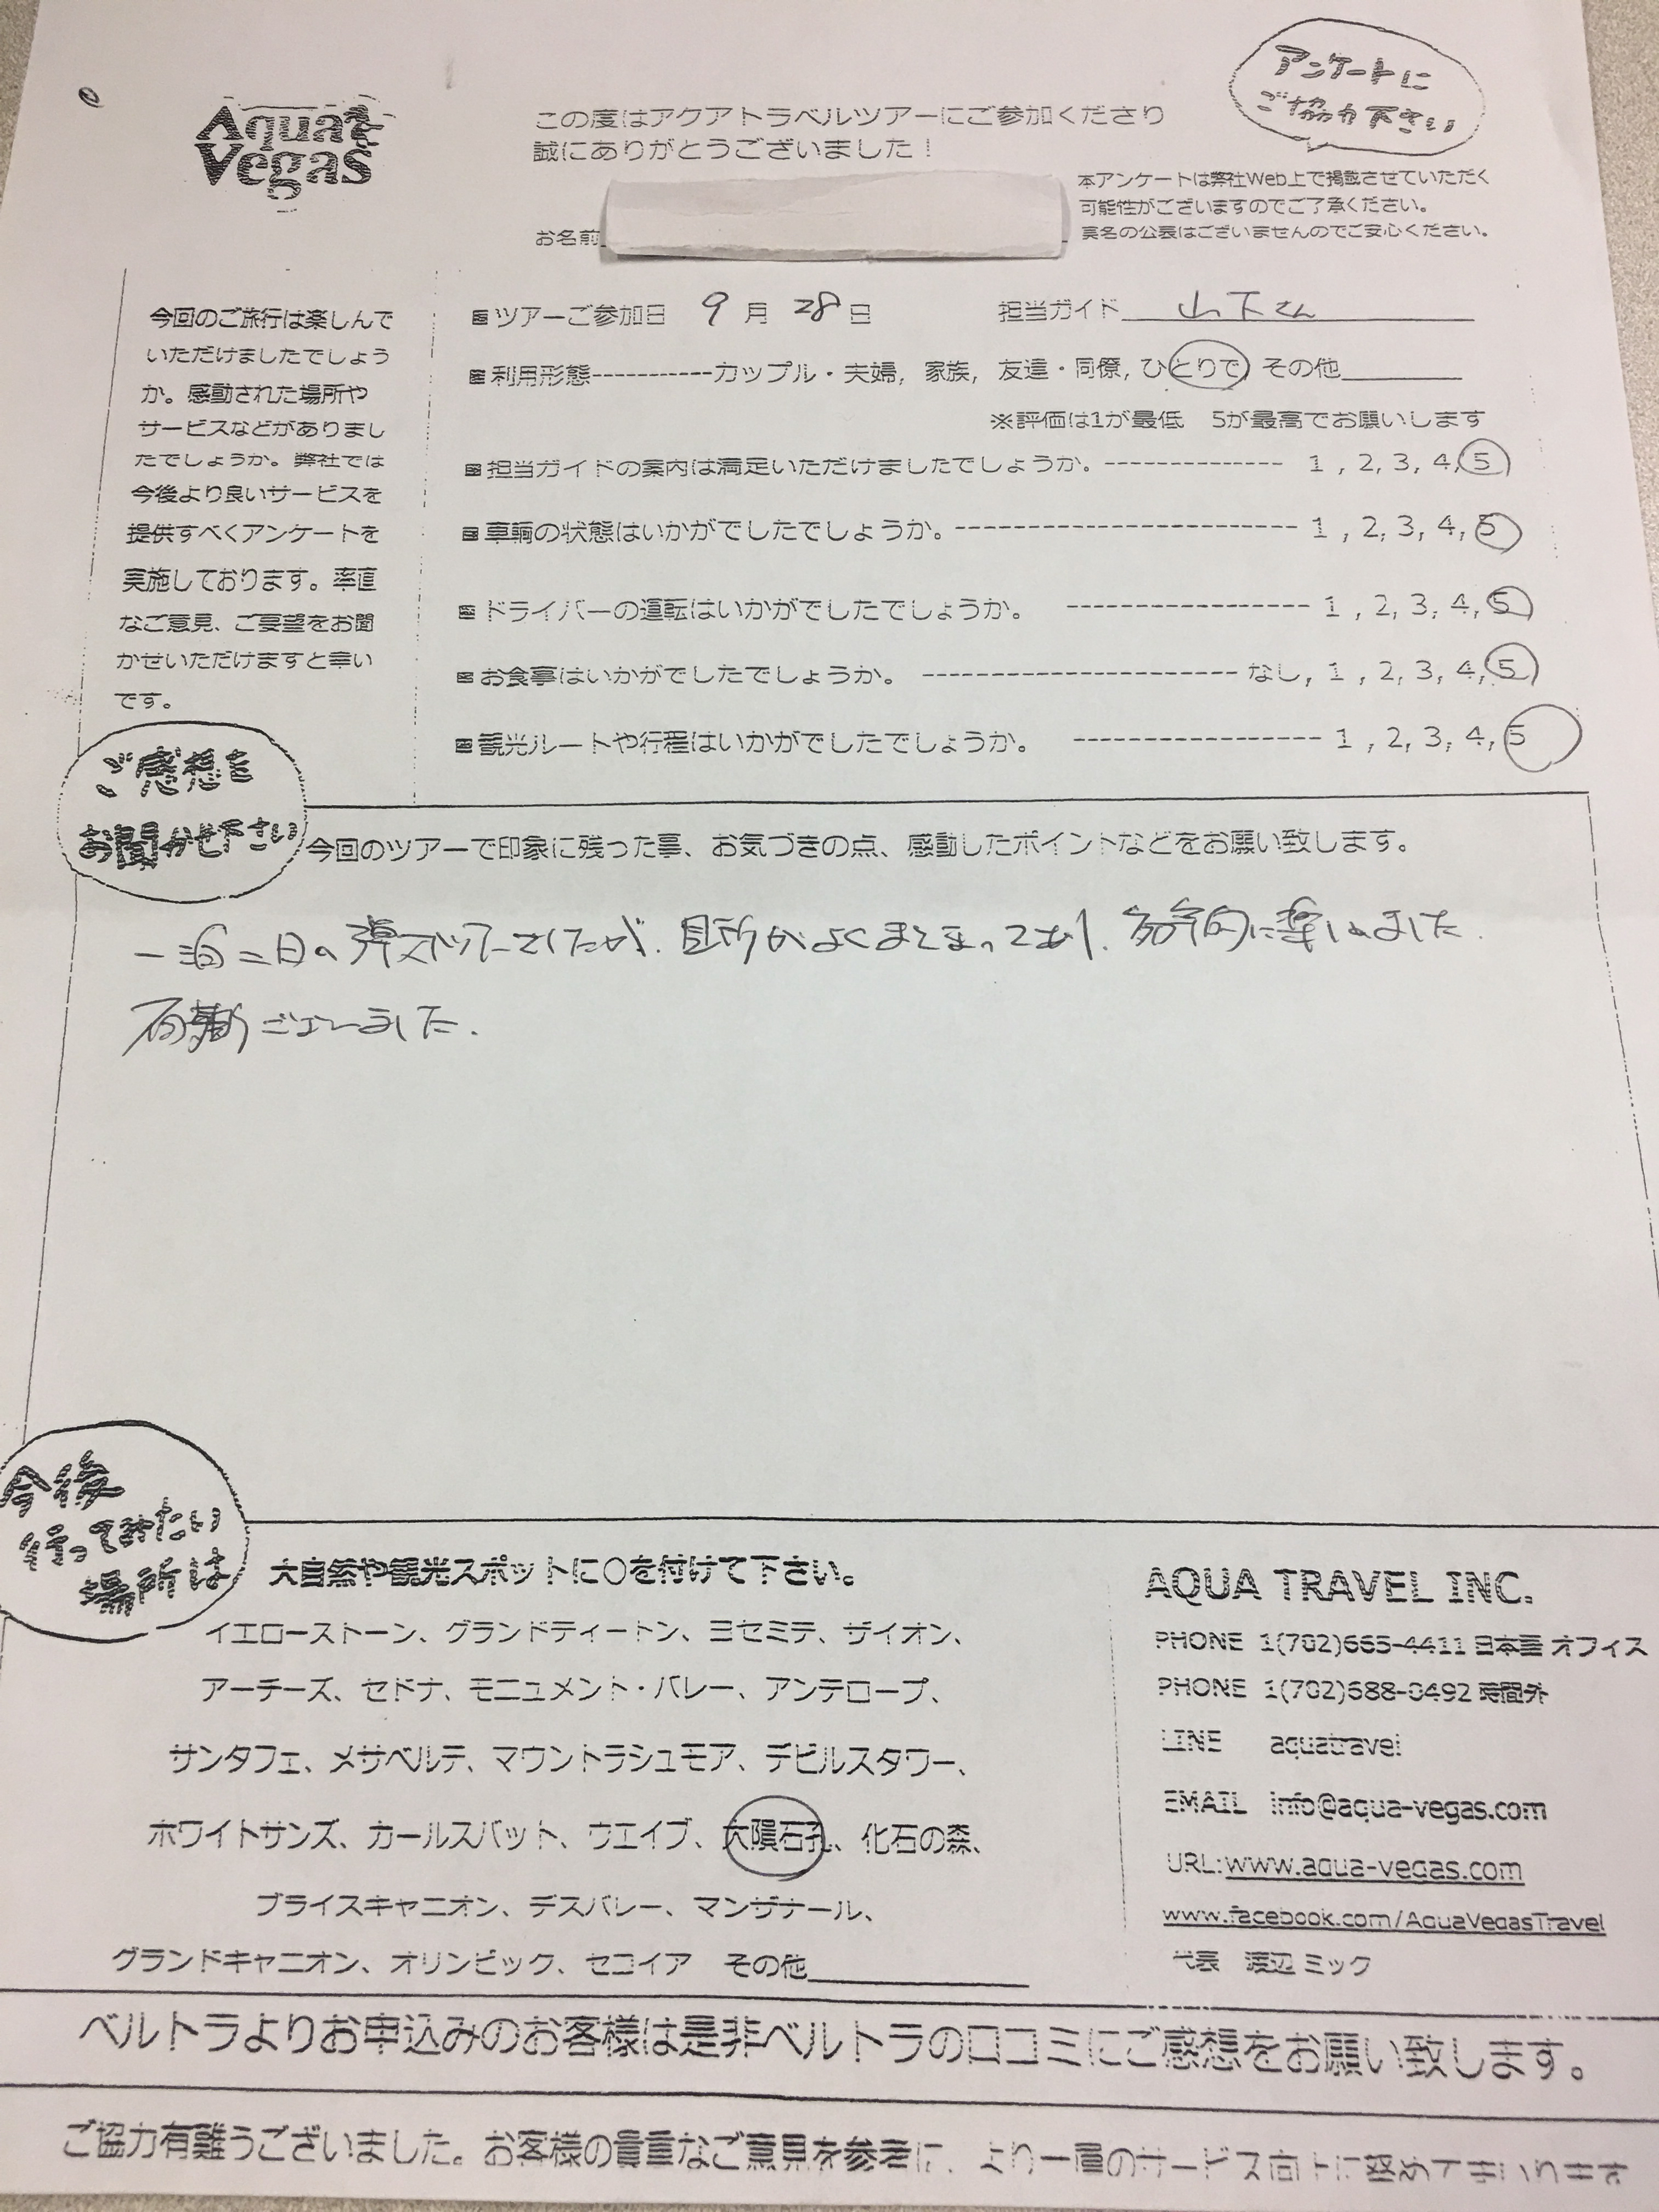 アンケートに
ご協力下さい
Aqua
Vegas
この度はアクアトラベルツアーにご参加くださり
誠にありがとうございました！
本アンケートは弊社Web上で掲載させていただく
可能性がございますのでご了承ください。
実名の公表はございませんのでご安心ください。
お名前
今回のご旅行は楽しんで
いただけましたでしょう
か。感動された場所や
サービスなどがありまし
たでしょうか。弊社では
今後より良いサービスを
提供すべくアンケートを
実施しております。率直
なご意見、ご要望をお聞
かせいただけますと幸い
です。
ツアーご参加日 9月 28日 担当ガイド 山下さん
利用形態-----------カップル・夫婦, 家族, 友達・同僚, ひとりで, その他
※評価は1が最低 5が最高でお願いします
担当ガイドの案内は満足いただけましたでしょうか。-------------- 1 , 2, 3, 4, 5
車輌の状態はいかがでしたでしょうか。--------------------------- 1 , 2, 3, 4, 5
ドライバーの運転はいかがでしたでしょうか。 ------------------- 1 , 2, 3, 4, 5
お食事はいかがでしたでしょうか。 ------------------------- なし, 1 , 2, 3, 4, 5
観光ルートや行程はいかがでしたでしょうか。 ------------------- 1 , 2, 3, 4, 5
ご感想を
お聞かせ下さい
今回のツアーで印象に残った事、お気づきの点、感動したポイントなどをお願い致します。
一泊二日の弾丸ツアーでしたが、見所がよくまとまっており、効率的に楽しめました.
有難うございました.
今後
行ってみたい
場所は
大自然や観光スポットに〇を付けて下さい。
イエローストーン、グランドティートン、ヨセミテ、ザイオン、
アーチーズ、セドナ、モニュメント・バレー、アンテロープ、
サンタフェ、メサベルテ、マウントラシュモア、デビルスタワー、
ホワイトサンズ、カールスバット、ウエイブ、大隕石孔、化石の森、
ブライスキャニオン、デスバレー、マンザナール、
グランドキャニオン、オリンピック、セコイア その他
AQUA TRAVEL INC.
PHONE 1(702)665-4411 日本語 オフィス
PHONE 1(702)688-0492 時間外
LINE aquatravel
EMAIL info@aqua-vegas.com
URL:www.aqua-vegas.com
www.facebook.com/AquaVegasTravel
代表 渡辺 ミック
ベルトラよりお申込みのお客様は是非ベルトラの口コミにご感想をお願い致します。
ご協力有難うございました。お客様の貴重なご意見を参考に、より一層のサービス向上に努めてまいります